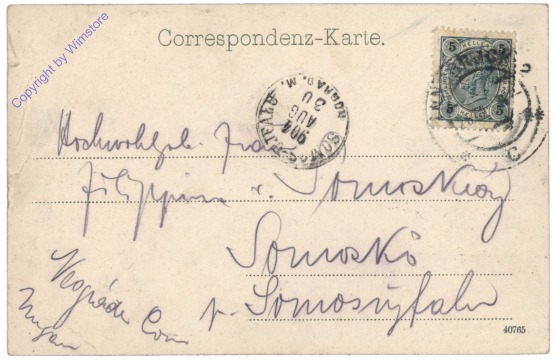 Copyright by Wimstore
Correspondenz-Karte.
5 HELLER 5
SOMOSÚJFALU
904
AUG
30
NÓGRÁD M.
Hochwohlgeb. Frau
Filippina v. Somosköy
Somoskö
p. Somosújfalu
Neográder Com
Ungarn
40765